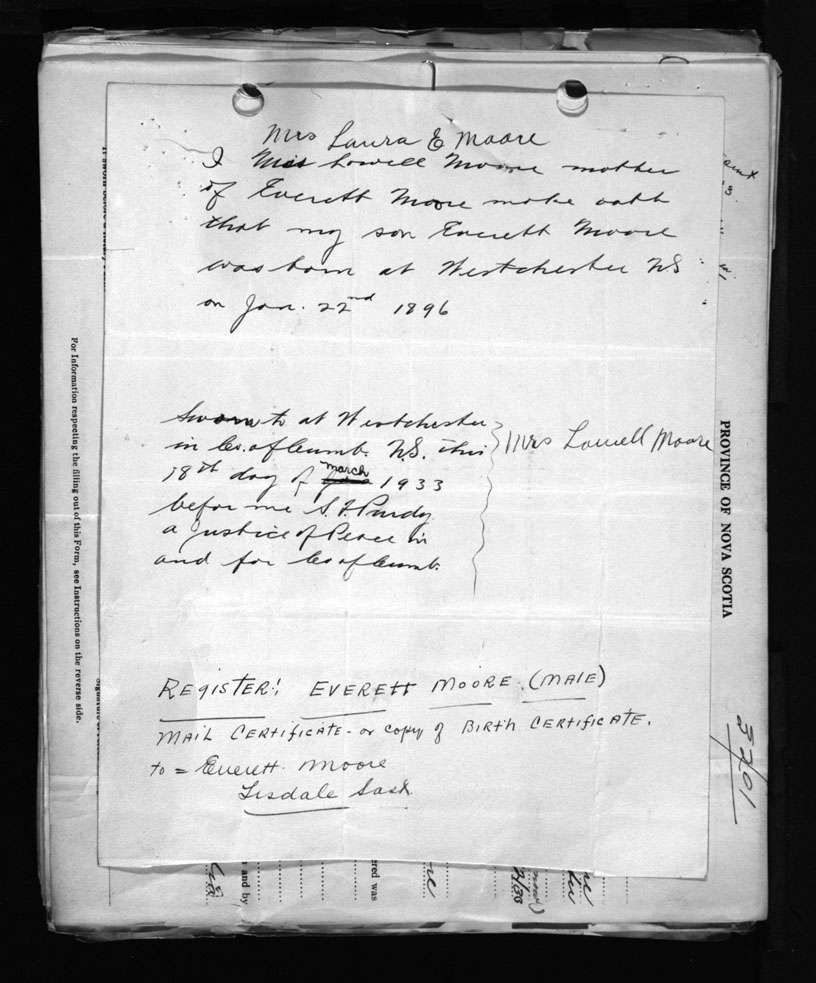 Mrs Laura E Moore
I Mrs Lowell Moore mother
of Everett Moore make oath
that my son Everett Moore
was born at Westchester NS
on Jan. 22nd 1896
Sworn to at Westchester
in Co. of Cumb. N.S. this
18th day of march 1933
before me S. F. Purdy
a justice of Peace in
and for Co of Cumb.
Mrs Lowell Moore
REGISTER! EVERETT MOORE. (MALE)
MAIL CERTIFICATE - or copy of BIRTH CERTIFICATE.
to = Everett Moore
Tisdale Sask.
PROVINCE OF NOVA SCOTIA
3701
For Information respecting the filling out of this Form, see Instructions on the reverse side.
ered was
and by